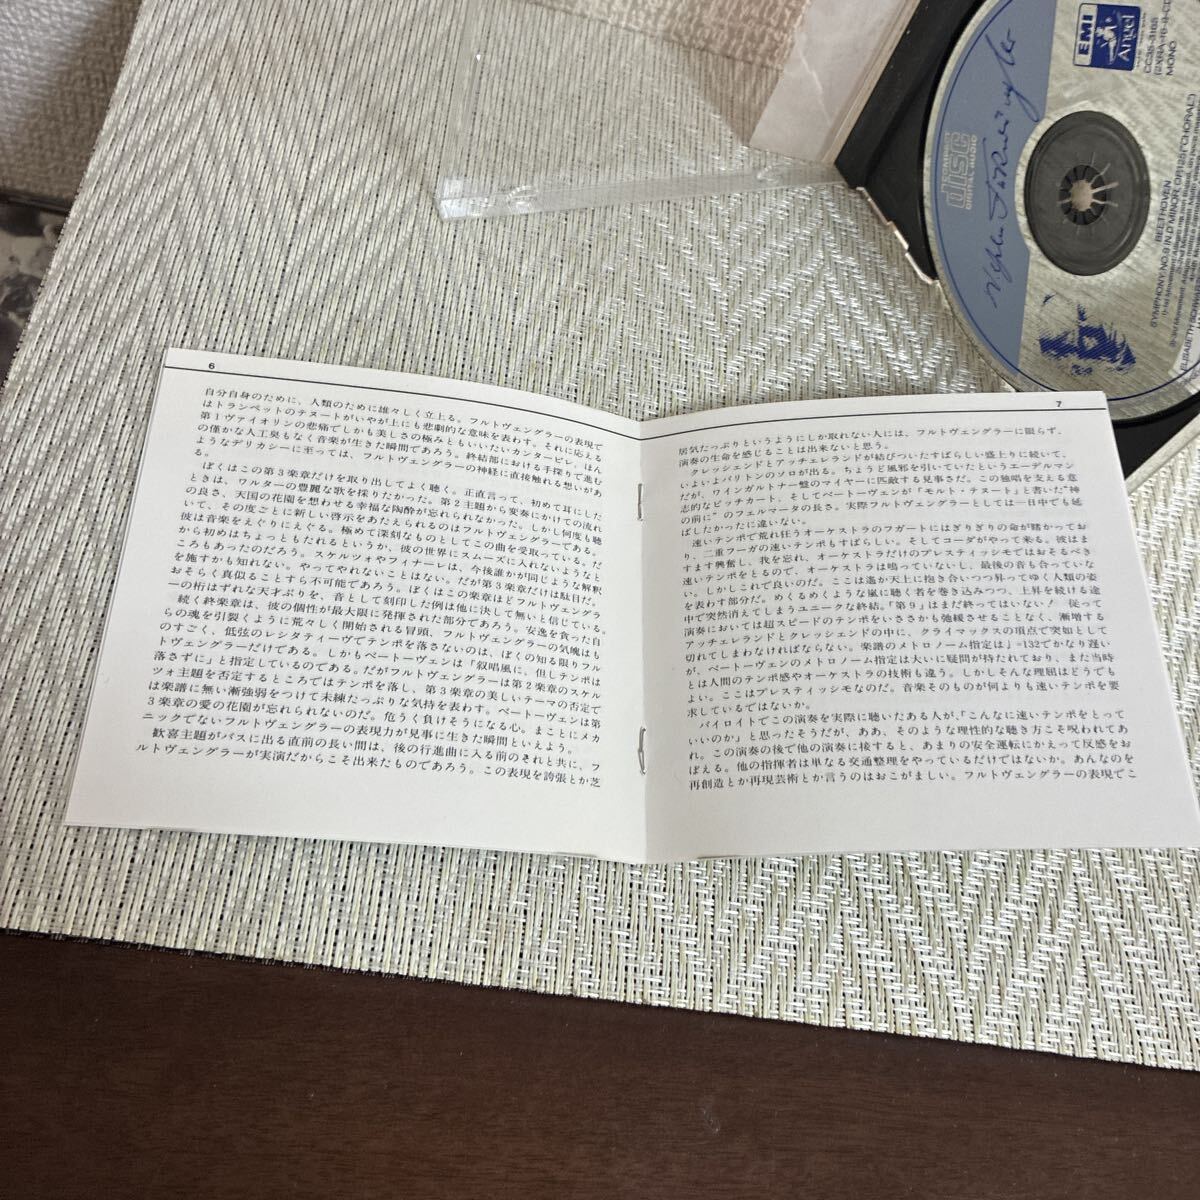 6
自分自身のために、人類のために誰々しく立上る。フルトヴェングラーの表現で
はトランペットのテヌートがいやが上にも悲劇的な意味を表わす。それに応える
第1ヴァイオリンの悲痛でしかも美しさの極みともいいたいカンタービレ。ほん
の僅かな人工臭もなく音楽が生きた瞬間であろう。終結部における手探りで進む
ようなデリカシーに至っては、フルトヴェングラーの神経に直接触れる想いがあ
る。
ぼくはこの第3楽章だけを取り出してよく聴く。正直言って、初めて耳にした
ときは、ワルターの豊麗な歌を採りたかった。第2主題から変奏にかけての流れ
の良さ、天国の花園を想わせる幸福な陶酔が忘れられなかった。しかし何度も聴
いて、その度ごとに新しい啓示をあたえられるのはフルトヴェングラーである。
彼は音楽をえぐりにえぐる。極めて深刻なものとしてこの曲を受取っている。だ
から初めはちょっともたれるというか、彼の世界にスムーズに入れないようなと
ころもあったのだろう。スケルツォやフィナーレは、今後誰かが同じような解釈
を施すかも知れない。やってやれないことはない。だが第3楽章だけは駄目だ。
おそらく真似ることすら不可能であろう。ぼくはこの楽章ほどフルトヴェングラ
ーの桁はずれな天才ぶりを、音として刻印した例は他に決して無いと信じている。
続く終楽章は、彼の個性が最大限に発揮された部分であろう。安逸を貪った自
らの魂を引裂くように荒々しく開始される冒頭、フルトヴェングラーの気魄はも
のすごく、低弦のレシタティーヴでテンポを落さないのは、ぼくの知る限りフル
トヴェングラーだけである。しかもベートーヴェンは「叙唱風に、但しテンポは
落さずに」と指定しているのである。だがフルトヴェングラーは第2楽章のスケル
ツォ主題を否定するところではテンポを落し、第3楽章の美しいテーマの否定で
は楽譜に無い漸強弱をつけて未練たっぷりな気持を表わす。ベートーヴェンは第
3楽章の愛の花園が忘れられないのだ。危うく負けそうになる心。まことにメカ
ニックでないフルトヴェングラーの表現力が見事に生きた瞬間といえよう。
歓喜主題がバスに出る直前の長い間は、後の行進曲に入る前のそれと共に、フ
ルトヴェングラーが実演だからこそ出来たものであろう。この表現を誇張とか芝
7
居気たっぷりというようにしか取れない人には、フルトヴェングラーに限らず、
演奏の生命を感じることは出来ないと思う。
クレッシェンドとアッチェレランドが結びついたすばらしい盛上りに続いて、
いよいよバリトンのソロが出る。ちょうど風邪を引いていたというエーデルマン
だが、ワインガルトナー盤のマイヤーに匹敵する見事さだ。この独唱を支える意
志的なピッチカート、そしてベートーヴェンが「モルト・テヌート」と書いた“神
の前に”のフェルマータの長さ。実際フルトヴェングラーとしては一日中でも延
ばしたかったに違いない。
速いテンポで荒れ狂うオーケストラのフガートにはぎりぎりの命が賭かってお
り、二重フーガの速いテンポもすばらしい。そしてコーダがやって来る。彼はま
すます興奮し、我を忘れ、オーケストラだけのプレスティッシモではおそるべき
速いテンポをとるので、オーケストラは鳴っていないし、最後の音も合っていな
い。しかしこれで良いのだ。ここは遙か天上に抱き合いつつ昇ってゆく人類の姿
を表わす部分だ。めくるめくような嵐に聴く者を巻き込みつつ、上昇を続ける途
中で突然消えてしまうユニークな終結。「第9」はまだ終ってはいない！ 従って
演奏においては超スピードのテンポをいささかも弛緩させることなく、漸増する
アッチェレランドとクレッシェンドの中に、クライマックスの頂点で突如として
切れてしまわなければならない。楽譜のメトロノーム指定は♩=132でかなり遅い
が、ベートーヴェンのメトロノーム指定は大いに疑問が持たれており、また当時
とは人間のテンポ感やオーケストラの技術も違う。しかしそんな理屈はどうでも
よい。ここはプレスティッシモなのだ。音楽そのものが何よりも速いテンポを要
求しているではないか。
バイロイトでこの演奏を実際に聴いたある人が、「こんなに速いテンポをとって
いいのか」と思ったそうだが、ああ、そのような理性的な聴き方こそ呪われてあ
れ。この演奏の後で他の演奏に接すると、あまりの安全運転にかえって反感をお
ぼえる。他の指揮者は単なる交通整理をやっているだけではないか。あんなのを
再創造とか再現芸術とか言うのはおこがましい。フルトヴェングラーの表現でこ
EMI
Angel
CC35-3165
MONO
COMPACT
disc
DIGITAL AUDIO
BEETHOVEN
SYMPHONY NO.9 IN D MINOR, OP.125 "CHORAL"